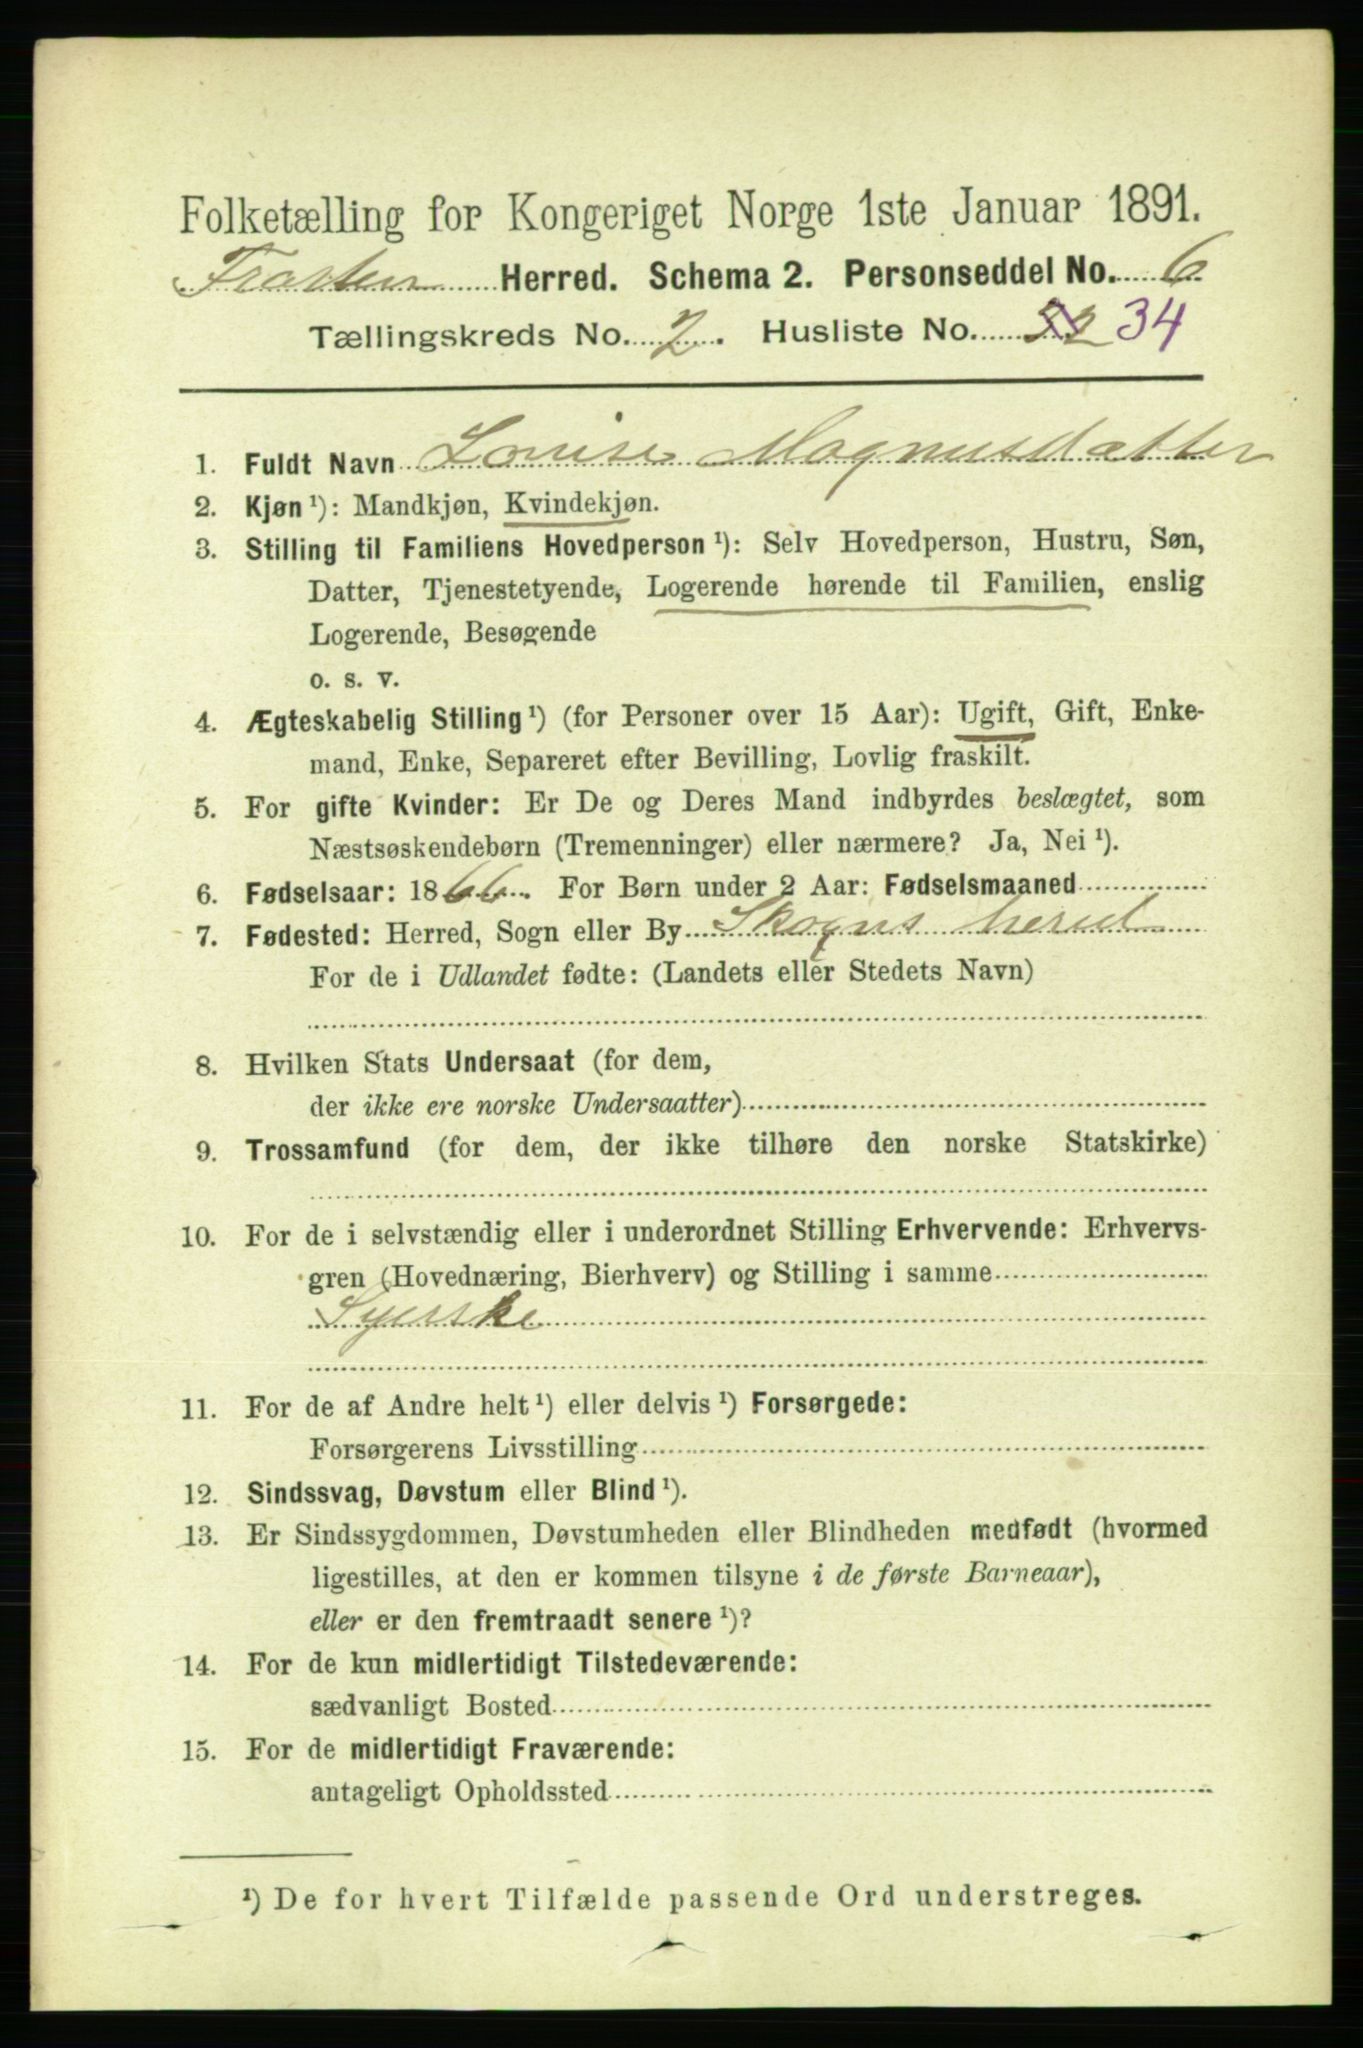 Folketælling for Kongeriget Norge 1ste Januar 1891.
Frosten Herred. Schema 2. Personseddel No. 6
Tællingskreds No. 2. Husliste No. 34
1. Fuldt Navn Louise Magnusdatter
2. Kjøn ¹): Mandkjøn, Kvindekjøn.
3. Stilling til Familiens Hovedperson ¹): Selv Hovedperson, Hustru, Søn,
Datter, Tjenestetyende, Logerende hørende til Familien, enslig
Logerende, Besøgende
o. s. v.
4. Ægteskabelig Stilling ¹) (for Personer over 15 Aar): Ugift, Gift, Enke-
mand, Enke, Separeret efter Bevilling, Lovlig fraskilt.
5. For gifte Kvinder: Er De og Deres Mand indbyrdes beslægtet, som
Næstsøskendebørn (Tremenninger) eller nærmere? Ja, Nei ¹).
6. Fødselsaar: 1866. For Børn under 2 Aar: Fødselsmaaned
7. Fødested: Herred, Sogn eller By Skogns herred
For de i Udlandet fødte: (Landets eller Stedets Navn)
8. Hvilken Stats Undersaat (for dem,
der ikke ere norske Undersaatter)
9. Trossamfund (for dem, der ikke tilhøre den norske Statskirke)
10. For de i selvstændig eller i underordnet Stilling Erhvervende: Erhvervs-
gren (Hovednæring, Bierhverv) og Stilling i samme
Syerske
11. For de af Andre helt ¹) eller delvis ¹) Forsørgede:
Forsørgerens Livsstilling
12. Sindssvag, Døvstum eller Blind ¹).
13. Er Sindssygdommen, Døvstumheden eller Blindheden medfødt (hvormed
ligestilles, at den er kommen tilsyne i de første Barneaar),
eller er den fremtraadt senere ¹)?
14. For de kun midlertidigt Tilstedeværende:
sædvanligt Bosted
15. For de midlertidigt Fraværende:
antageligt Opholdssted
¹) De for hvert Tilfælde passende Ord understreges.